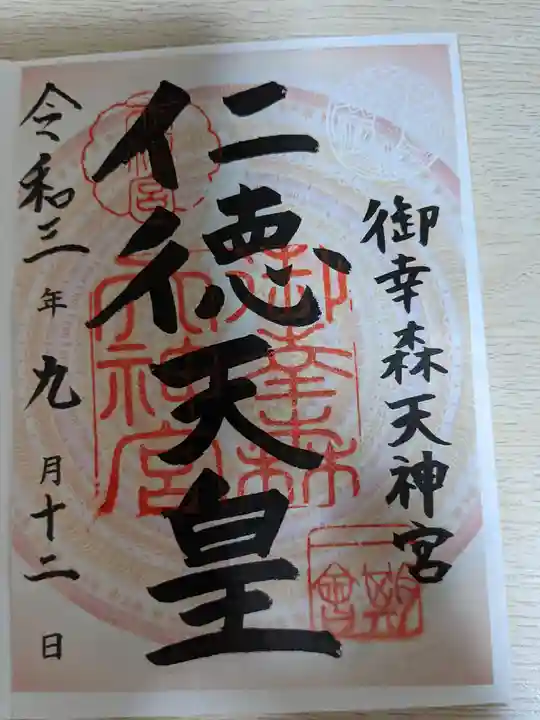 御幸森天神宮
仁徳天皇
御幸森
天神宮
令和三年九月十二日